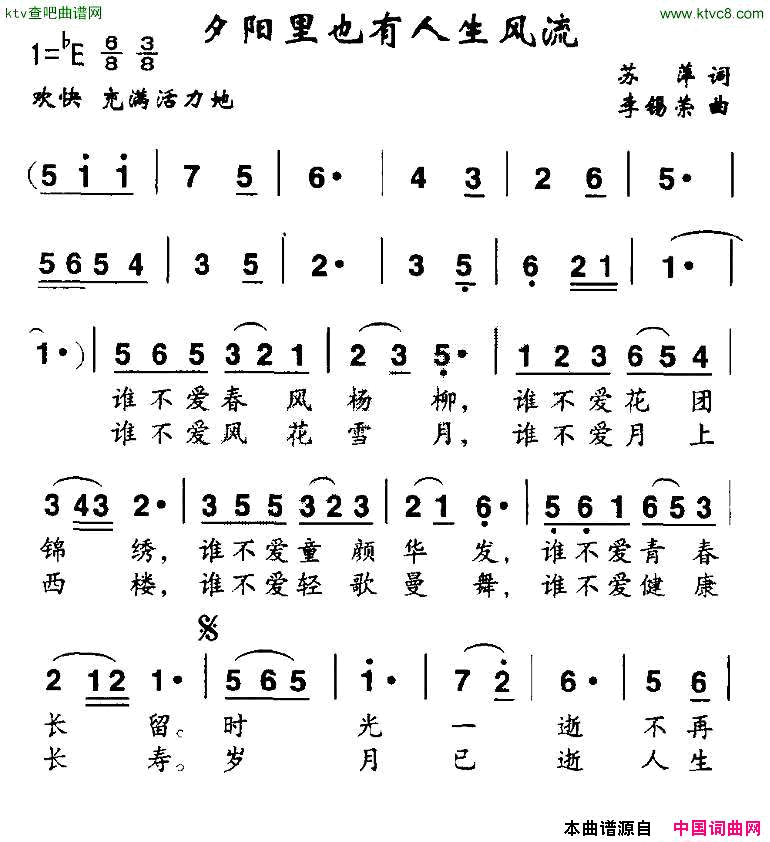 ktv查吧曲谱网 www.ktvc8.com
夕阳里也有人生风流
1=♭E 6/8 3/8
苏萍词
欢快 充满活力地
李锡荣曲
(5 i i | 7 5 | 6· | 4 3 | 2 6 | 5· |
5654 | 3 5 | 2· | 3 5̣ | 6̣ 21 | 1· |
1·) | 5 6 5 3 2 1 | 2 3 5̣· | 1 2 3 6 5 4 |
谁不爱春风杨柳,谁不爱花团
谁不爱风花雪月,谁不爱月上
3 43 2· | 3 5 5 3 2 3 | 2 1 6̣· | 5̣ 6̣ 1 6 5 3 |
锦绣,谁不爱童颜华发,谁不爱青春
西楼,谁不爱轻歌曼舞,谁不爱健康
2 12 1· | 5 6 5 | i· | 7 2̇ | 6· | 5 6
长留。时光一逝不再
长寿。岁月已逝人生
本曲谱源自 中国词曲网